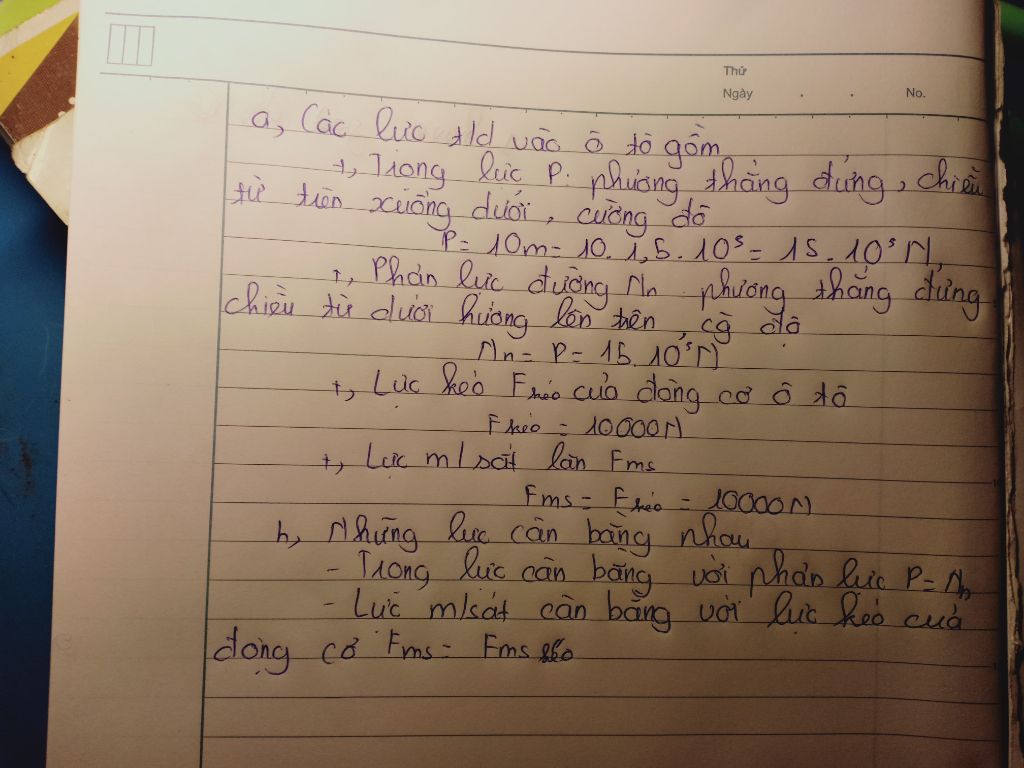 Thứ
Ngày . . No.
a, Các lực t/d vào ô tô gồm
+, Trọng lực P. phương thẳng đứng, chiều
từ trên xuống dưới, cường độ
P = 10m = 10. 1,5. 10³ = 15. 10³ N,
+, Phản lực đường Nn phương thẳng đứng
chiều từ dưới hướng lên trên, cg độ
Nn = P = 15. 10³ N
+, Lực kéo Fkéo của động cơ ô tô
Fkéo = 10000N
+, Lực m/sát lăn Fms
Fms = Fkéo = 10000N
b, Những lực cân bằng nhau
- Trọng lực cân bằng với phản lực P = Nn
- Lực m/sát cân bằng với lực kéo của
động cơ Fms = Fms kéo